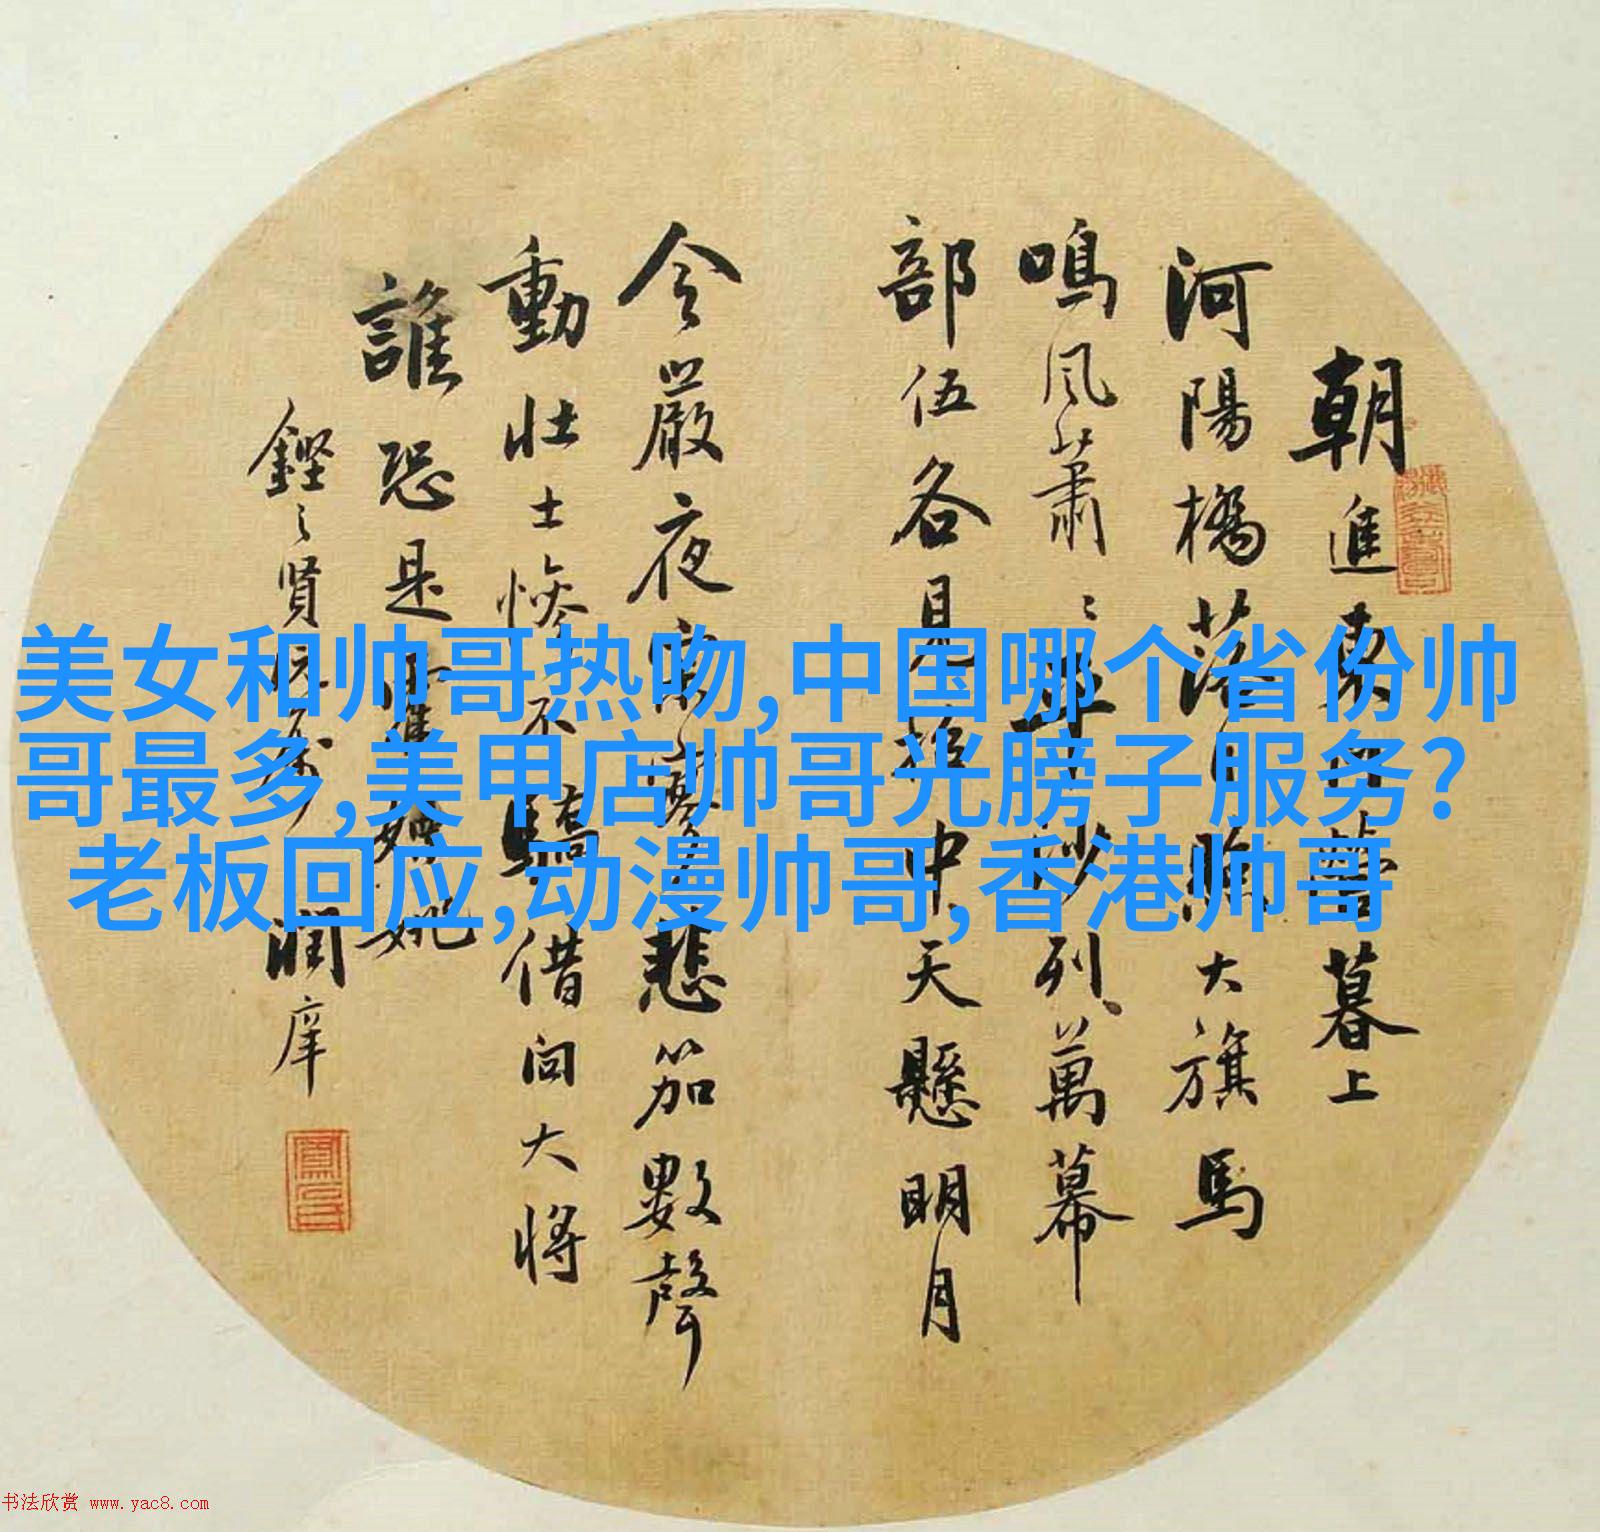 美女和帅哥热吻,中国哪个省份帅
哥最多,美甲店帅哥光膀子服务?
老板回应,动漫帅哥,香港帅哥
朝進東門營暮上
河陽橋落日照大旗馬
鳴風蕭〻平沙列萬幕
部伍各見招中天懸明月
令嚴夜寂寥悲笳數聲
動壯士慘不驕借問大將
誰恐是霍嫖姚
鏗〻賢 潤庠
书法欣赏 www.yac8.com